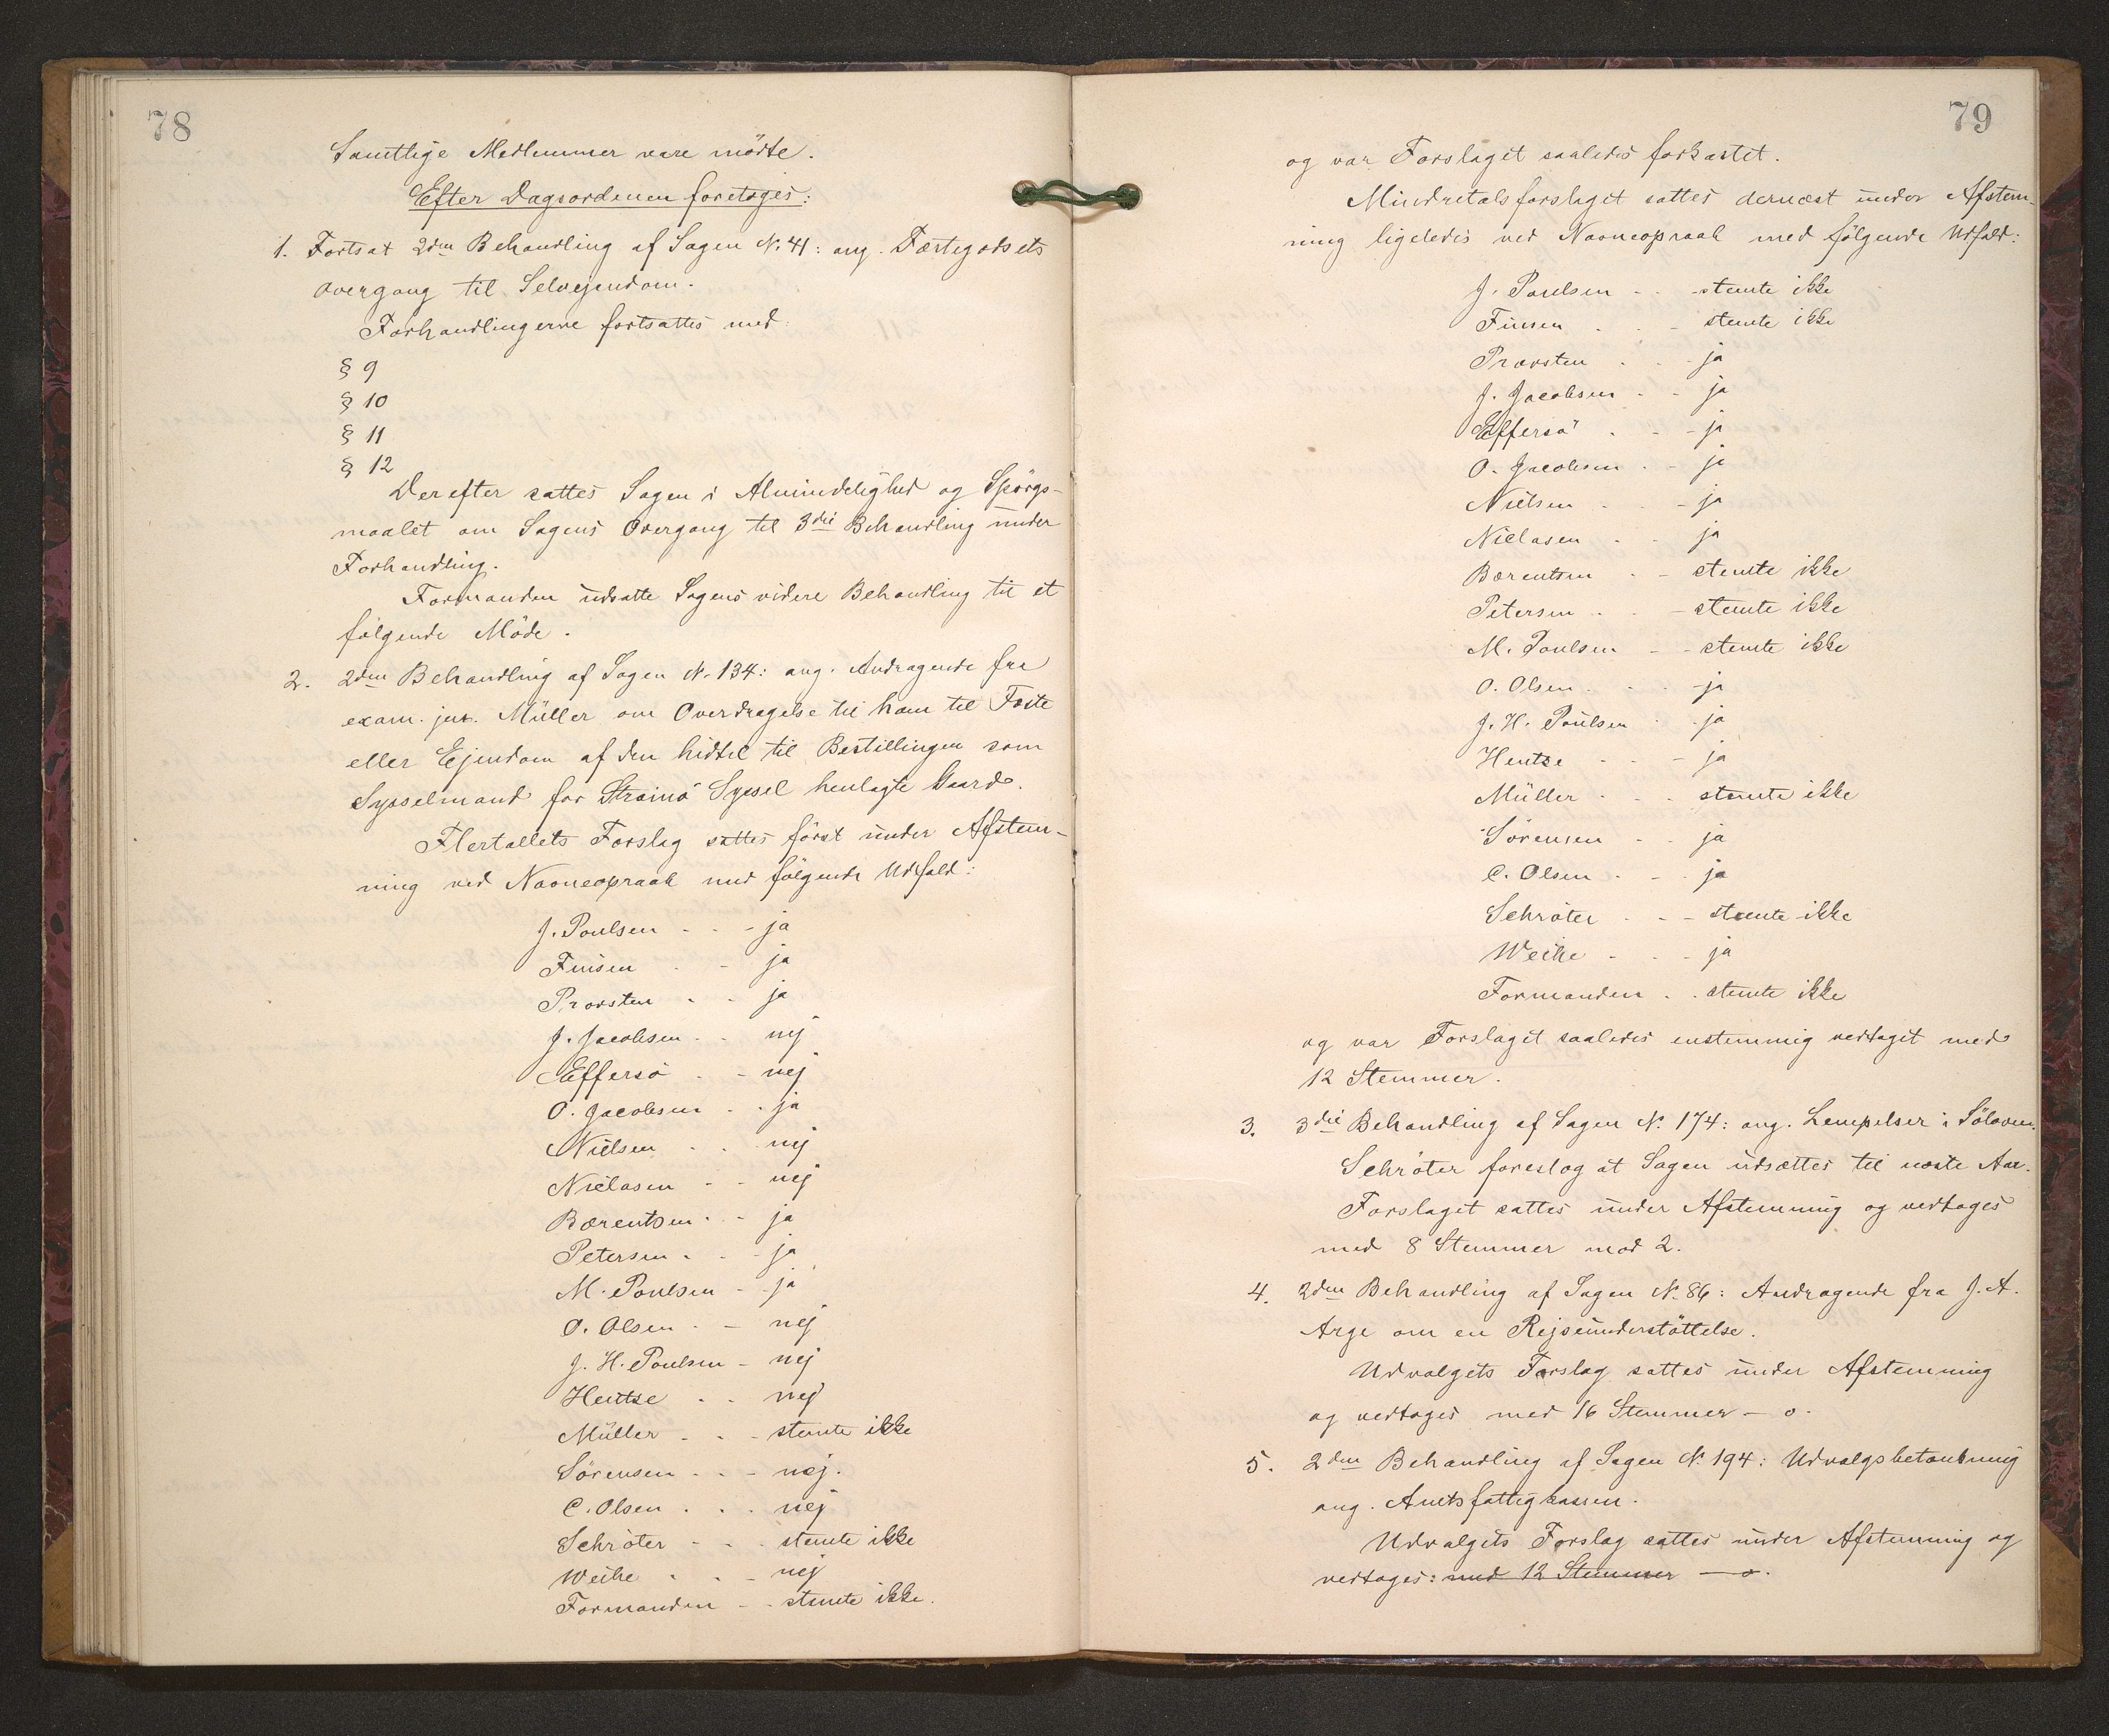 78
Samtlige Medlemmer vare mödte.
Efter Dagsordenen foretoges:
1. Fortsat 2den Behandling af Sagen N. 41: ang. Fæstegodsets
Overgang til Selvejendom.
Forhandlingerne fortsattes med
§ 9
§ 10
§ 11
§ 12
Derefter sattes Sagen i Almindelighed og Spörgs-
maalet om Sagens Overgang til 3die Behandling under
Forhandling.
Formanden udsatte Sagens videre Behandling til et
fölgende Möde.
2. 2den Behandling af Sagen N. 134: ang. Andragende fra
exam. jur. Müller om Overdragelse til ham til Fæste
eller Ejendom af den hidtil til Bestillingen som
Sysselmand for Strömö Syssel henlagte Gaard.
Flertallets Forslag sattes först under Afstem-
ning ved Navneopraab med fölgende Udfald:
J. Poulsen - - - ja
Finsen - - ja
Provsten - - ja
J. Jacobsen - - nej
Effersö - - nej
O. Jacobsen - - ja
Nielsen - - nej
Niclasen - - nej
Bærentsen - - ja
Petersen - - ja
M. Poulsen - - ja
O. Olsen - - nej
J. H. Poulsen - nej
Hentze - - nej
Müller - - - stemte ikke
Sörensen - - - nej.
C. Olsen - - - nej
Schröter - - - stemte ikke
Weihe - - - nej
Formanden - - stemte ikke.
79
og var Forslaget saaledes forkastet.
Mindretalsforslaget sattes dernæst under Afstem-
ning ligeledes ved Navneopraab med fölgende Udfald:
J. Poulsen - - - stemte ikke
Finsen - - - stemte ikke
Provsten - - - ja
J. Jacobsen - - ja
Effersö - - - ja
O. Jacobsen - - ja
Nielsen - - - ja
Niclasen - - ja
Bærentsen - - stemte ikke
Petersen - - - stemte ikke
M. Poulsen - - stemte ikke
O. Olsen - - - ja
J. H. Poulsen - - ja
Hentze - - - ja
Müller - - - stemte ikke
Sörensen - - ja
C. Olsen - - - ja
Schröter - - - stemte ikke
Weihe - - - ja
Formanden - - stemte ikke
og var Forslaget saaledes enstemmig vedtaget med
12 Stemmer.
3. 3die Behandling af Sagen N. 174: ang. Lempelser i Söloven.
Schröter foreslog at Sagen udsættes til næste Aar.
Forslaget sattes under Afstemning og vedtoges
med 8 Stemmer mod 2.
4. 2den Behandling af Sagen N. 86: Andragende fra J. A.
Arge om en Rejseunderstöttelse.
Udvalgets Forslag sattes under Afstemning
og vedtoges med 16 Stemmer - o.
5. 2den Behandling af Sagen N. 194: Udvalgsbetænkning
ang. Amtsfattigkassen.
Udvalgets Forslag sattes under Afstemning og
vedtoges: med 12 Stemmer - o.